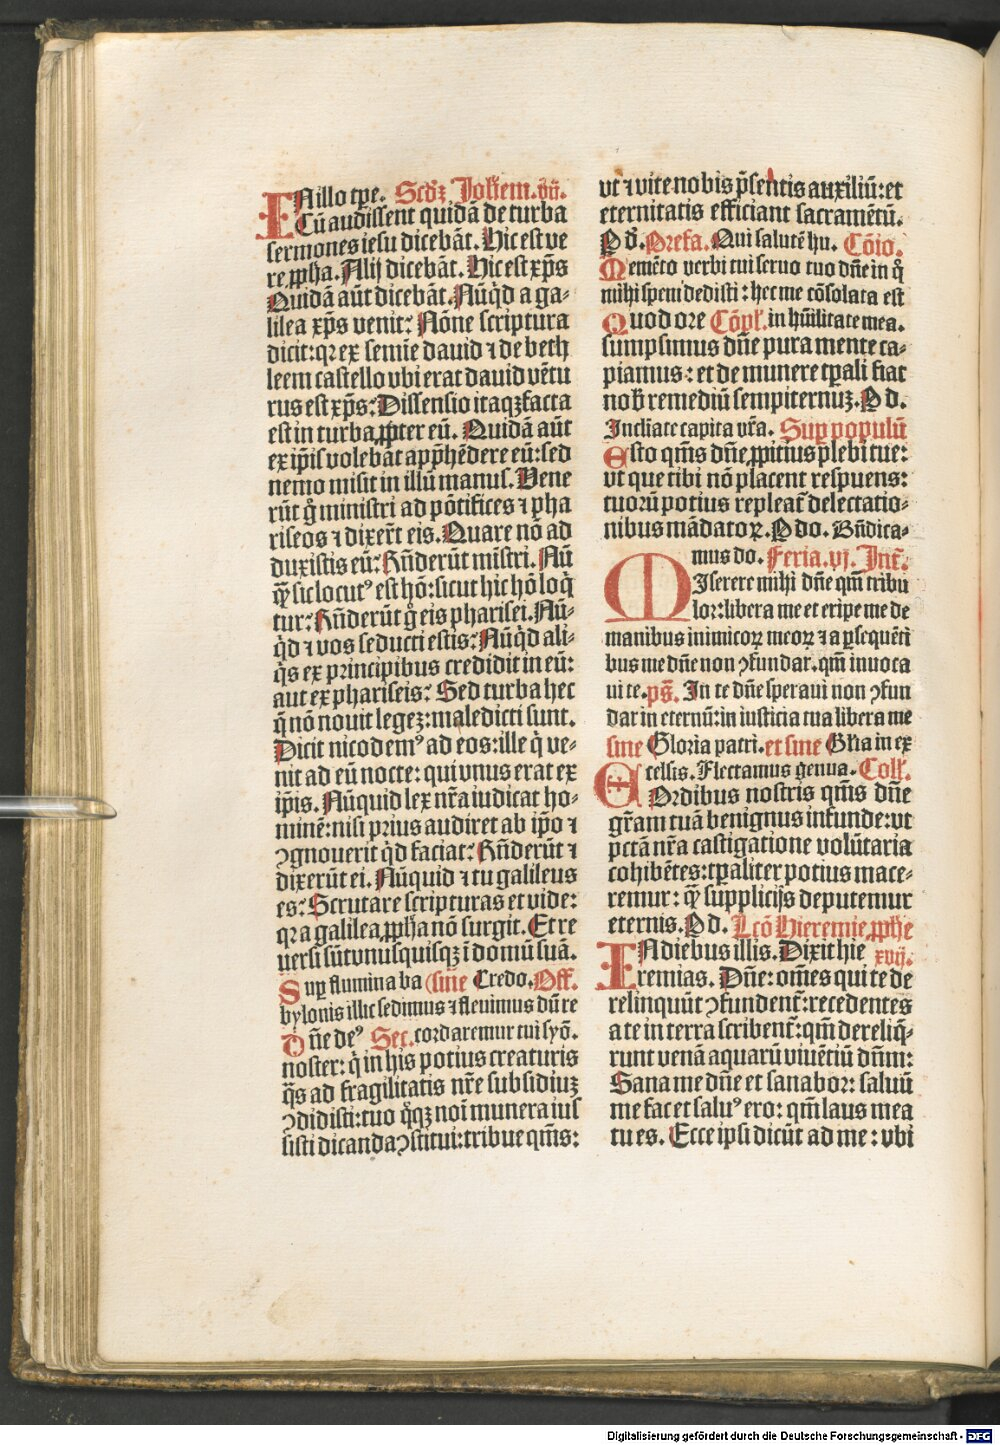 IN illo tꝑe. Scďꝫ Joħem. vij.
Cū audissent quidā de turba
sermones iesu dicebāt. Hic est ve
re ꝓpha. Alij dicebāt. Hic est xp̄s
Quidā aūt dicebāt. Nūqͥd a ga-
lilea xp̄s venit: Nōne scriptura
dicit: qꝛ ex semīe dauid ⁊ de beth
leem castello vbi erat dauid vētu
rus est xp̄s: Dissensio itaqꝫ facta
est in turba ꝓpter eū. Quidā aūt
ex ip̄is volebāt app̄hēdere eū: sed
nemo misit in illū manus. Vene
rūt g̊ ministri ad pōtifices ⁊ pha
riseos ⁊ dixer̄t eis. Quare nō ad
duxistis eū: Rn̄derūt mīstri. Nū
qͣꝫ sic locutꝰ est hō: sicut hic hō loqͥ
tur: Rn̄derūt g̊ eis pharisei. Nū-
qͥd ⁊ vos seducti estis: Nūqͥd ali-
qͥs ex principibus credidit in eū:
aut ex phariseis: Sed turba hec
q̄ nō nouit legeꝫ: maledicti sunt.
Dicit nicodemꝰ ad eos: ille qͥ ve-
nit ad eū nocte: qui vnus erat ex
ip̄is. Nūquid lex nr̄a iudicat ho-
minē: nisi prius audiret ab ip̄o ⁊
ꝯgnouerit qͥd faciat: Rn̄derūt ⁊
dixerūt ei. Nūquid ⁊ tu galileus
es: Scrutare scripturas et vide:
qꝛ a galilea ꝓpha nō surgit. Et re
uersi sūt vnusquisqꝫ ī domū suā.
Suꝑ flumina ba (sine Credo. Off.
bylonis illic sedimus ⁊ fleuimus dū re
Dn̄e deꝰ Sec. cordaremur tui syō.
noster: qͥ in his potius creaturis
q̄s ad fragilitatis nr̄e subsidiuꝫ
ꝯdidisti: tuo q̊qꝫ noī munera ius
sisti dicanda ꝯstitui: tribue qm̄s:
vt ⁊ vite nobis p̄sentis auxiliū: et
eternitatis efficiant sacramētū.
P d. Prefa. Qui salutē hu. Cōio.
Memēto verbi tui seruo tuo dn̄e in q̊
mihi spem dedisti: hec me cōsolata est
Quod ore Cōpl. in hūilitate mea.
sumpsimus dn̄e pura mente ca-
piamus: et de munere tꝑali fiat
nob̄ remediū sempiternuꝫ. P d.
Inclīate capita vr̄a. Suꝑ populū
Esto qm̄s dn̄e ꝓpitius plebi tue:
vt que tibi nō placent respuens:
tuorū potius repleat᷑ delectatio-
nibus mādatoꝝ. P do. Bn̄dica-
mus do. Feria. vj. Int̄.
MIserere mihi dn̄e qm̄ tribu
lor: libera me et eripe me de
manibus inimicoꝝ meoꝝ ⁊ a ꝑsequēti
bus me dn̄e non ꝯfundar. qm̄ inuoca
ui te. ps̄. In te dn̄e speraui non ꝯfun
dar in eternū: in iusticia tua libera me
sine Gloria patri. et sine Gl̄ia in ex
celsis. Flectamus genua. Coll.
COrdibus nostris qm̄s dn̄e
gr̄am tuā benignus infunde: vt
pctān nr̄a castigatione volūtaria
cohibētes: tꝑaliter potius mace-
remur: qͣꝫ supplicijs deputemur
eternis. P d. Lcō Hieremie ꝓphe
IN diebus illis. Dixit hie xvij.
remias. Dn̄e: om̄es qui te de
relinquūt ꝯfundent᷑: recedentes
a te in terra scribent᷑: qm̄ dereliq̄-
runt venā aquarū viuētiū dn̄m:
Sana me dn̄e et sanabor: saluū
me fac et saluꝰ ero: qm̄ laus mea
tu es. Ecce ipsi dicūt ad me: vbi
Digitalisierung gefördert durch die Deutsche Forschungsgemeinschaft - DFG